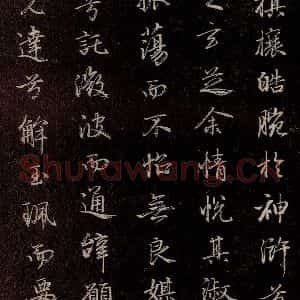 攘皓腕於神滸兮
之玄芝余情悅其淑
振蕩而不怡無良媒
兮託微波而通辭願
達兮解玉珮而要
Shufawang.CN